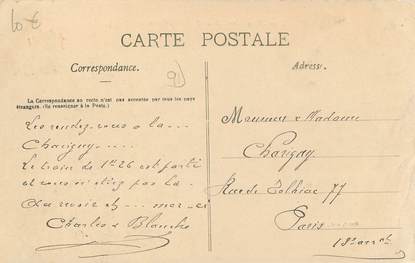 10 €
CARTE POSTALE
Correspondance.
Adresse.
La Correspondance au recto n'est pas acceptée par tous les pays
étrangers. (Se renseigner à la Poste.)
Les rendez-vous à la ...
Charigny ....
Le train de 1h 26 est parti
et vous n'étiez pas là
Au revoir et ... mer-ci
Charles & Blanche
Monsieur & Madame
Charigny
Rue de Tolbiac 77
Paris
13e arrdt